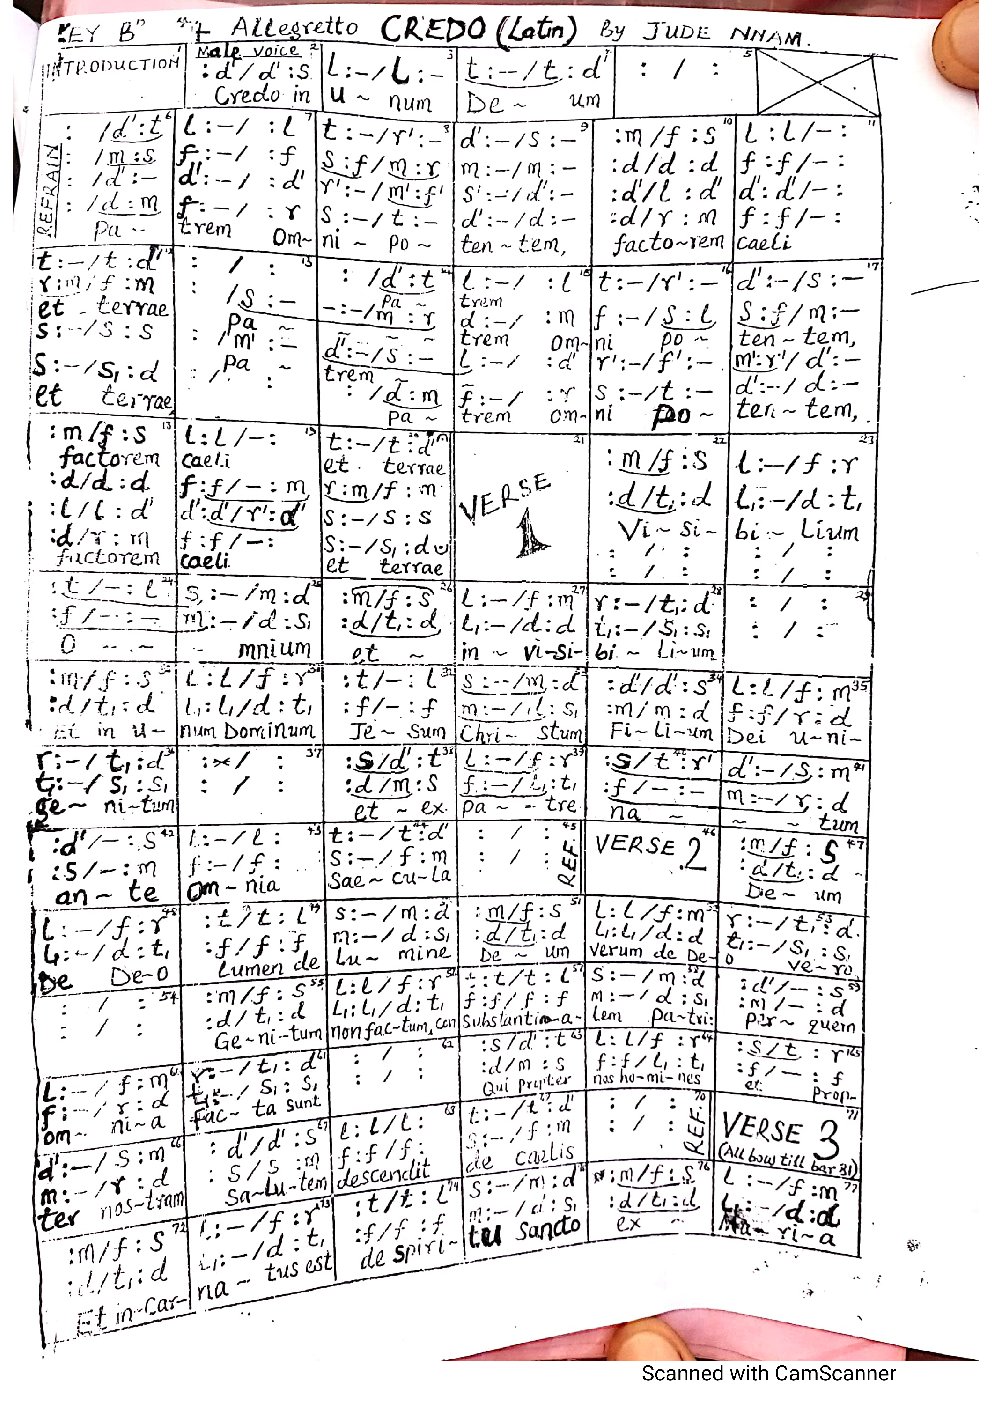 KEY B♭ 4/4 Allegretto CREDO (Latin) By JUDE NNAM.
INTRODUCTION Male voice 2 3 4 5
:d'/d':s L:-/L:- t:-/t:d' : / :
Credo in u~ num De~ um
REFRAIN
: /d':t 6 L:-/ :L 7 t:-/r':- 8 d':-/s:- 9 :m/f:s 10 L:L/-: 11
: /m:s f:-/ :f s:f/m:r m:-/m:- :d/d:d f:f/-:
: /d':- d':-/ :d' r':-/m':f' s':-/d':- :d'/L:d' d':d'/-:
: /d:m f:-/ :r s:-/t:- d':-/d:- :d/r:m f:f/-:
pa~ trem om~ ni~po~ ten~tem, facto~rem caeli
t:-/t:d' : / : 13 : /d':t L:-/ :L 15 t:-/r':- 16 d':-/s:- 17
r:m/f:m : /s:- pa~ trem
et terrae pa~ -:-/m:r d:-/ :m f:-/s:L s:f/m:-
trem om~ ni po~ ten~tem,
s:-/s:s : /m':- d':-/s:- L:-/ :d' r':-/f':- m':r'/d':-
pa~ trem
s:-/s₁:d : / : : /d:m f:-/ :r s:-/t:- d':-/d:-
et terrae pa~ trem om~ ni po~ ten~tem,
:m/f:s 18 L:L/-: 19 t:-/t:d' VERSE 1 21 :m/f:s 22 L:-/f:r 23
factorem caeli et terrae
:d/d:d f:f/-:m r:m/f:m :d/t₁:d L₁:-/d:t₁
:L/L:d' d':d'/r':d' s:-/s:s Vi~si~ bi~Lium
:d/r:m f:f/-: s:-/s₁:d : / : : / :
factorem caeli et terrae : / : : / :
:t/-:L 24 s:-/m:d 25 :m/f:s 26 L:-/f:m 27 r:-/t₁:d 28 : / : 29
:f/-:- m:-/d:s₁ :d/t₁:d L₁:-/d:d t₁:-/s₁:s₁ : / :
O ~ mnium et ~ in~vi-si- bi~Li-um
:m/f:s L:L/f:r :t/-:L s:-/m:d :d'/d':s 34 L:L/f:m 35
:d/t₁:d L₁:L₁/d:t₁ :f/-:f m:-/d:s₁ :m/m:d f:f/r:d
Et in u- num Dominum Je~sum Chri~stum Fi-Li-um Dei u-ni-
r:-/t₁:d 36 : / : 37 :s/d':t 38 L:-/f:r 39 :s/t:r' d':-/s:m 41
t₁:-/s₁:s₁ : / : :d/m:s f:-/L₁:t₁ :f/-:- m:-/r:d
ge~ni-tum et~ex pa~-tre na~ ~ ~ tum
:d'/-:s 42 L:-/L: 43 t:-/t:d' 44 : / : 45 VERSE 2 46 :m/f:s 47
:s/-:m f:-/f: s:-/f:m : / : REF. :d/t₁:d
an~te om~nia Sae~cu-la De~um
L:-/f:r 48 :t/t:L 49 s:-/m:d :m/f:s 51 L:L/f:m r:-/t₁:d 53
L₁:-/d:t₁ :f/f:f m:-/d:s₁ :d/t₁:d L₁:L₁/d:d t₁:-/s₁:s₁
De De-o Lumen de Lu~mine De~um verum de De- o ve-ro
: / : 54 :m/f:s 55 L:L/f:r :t/t:L 57 s:-/m:d :d'/-:s 59
: / : :d/t₁:d L₁:L₁/d:t₁ f:f/f:f m:-/d:s₁ :m/-:d
Ge~ni-tum non fac-tum, con Substantia-a- lem pa-tri: per~quem
L:-/f:m r:-/t₁:d 61 : / : 62 :s/d':t 63 L:L/f:r 64 :s/t:r 65
f:-/r:d t₁:-/s₁:s₁ : / : :d/m:s f:f/L₁:t₁ :f/-:f
om~ni-a Fac-ta sunt Qui propter nos ho-mi-nes et prop-
d':-/s:m 66 :d'/d':s 67 L:L/L: 68 t:-/t:d' 69 : / : 70 VERSE 3 71
m:-/r:d :s/s:m f:f/f: s:-/f:m : / : REF. (All bow till bar 81)
ter nos-tram Sa-Lu-tem descendit de caelis
:m/f:s 72 L:-/f:r 73 :t/t:L 74 s:-/m:d :m/f:s 76 L:-/f:m 77
:d/t₁:d L₁:-/d:t₁ :f/f:f m:-/d:s₁ :d/t₁:d L₁:-/d:d
Et in-car- na~tus est de spiri- tu sancto ex ~ Ma-ri-a
Scanned with CamScanner